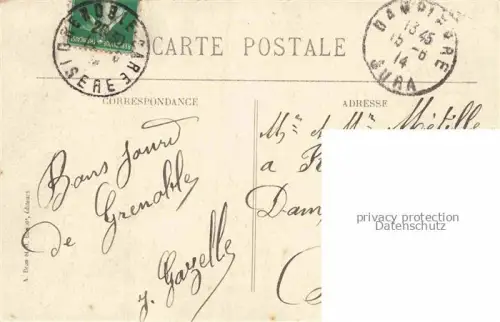 GRENOBLE GARE
ISERE
CARTE POSTALE
DAMPIERRE
13 45
15-6
14
JURA
CORRESPONDANCE
ADRESSE
Mr et Mme Métille
a
Dam
Bons jours
de Grenoble
J. Gazelle
privacy protection
Datenschutz